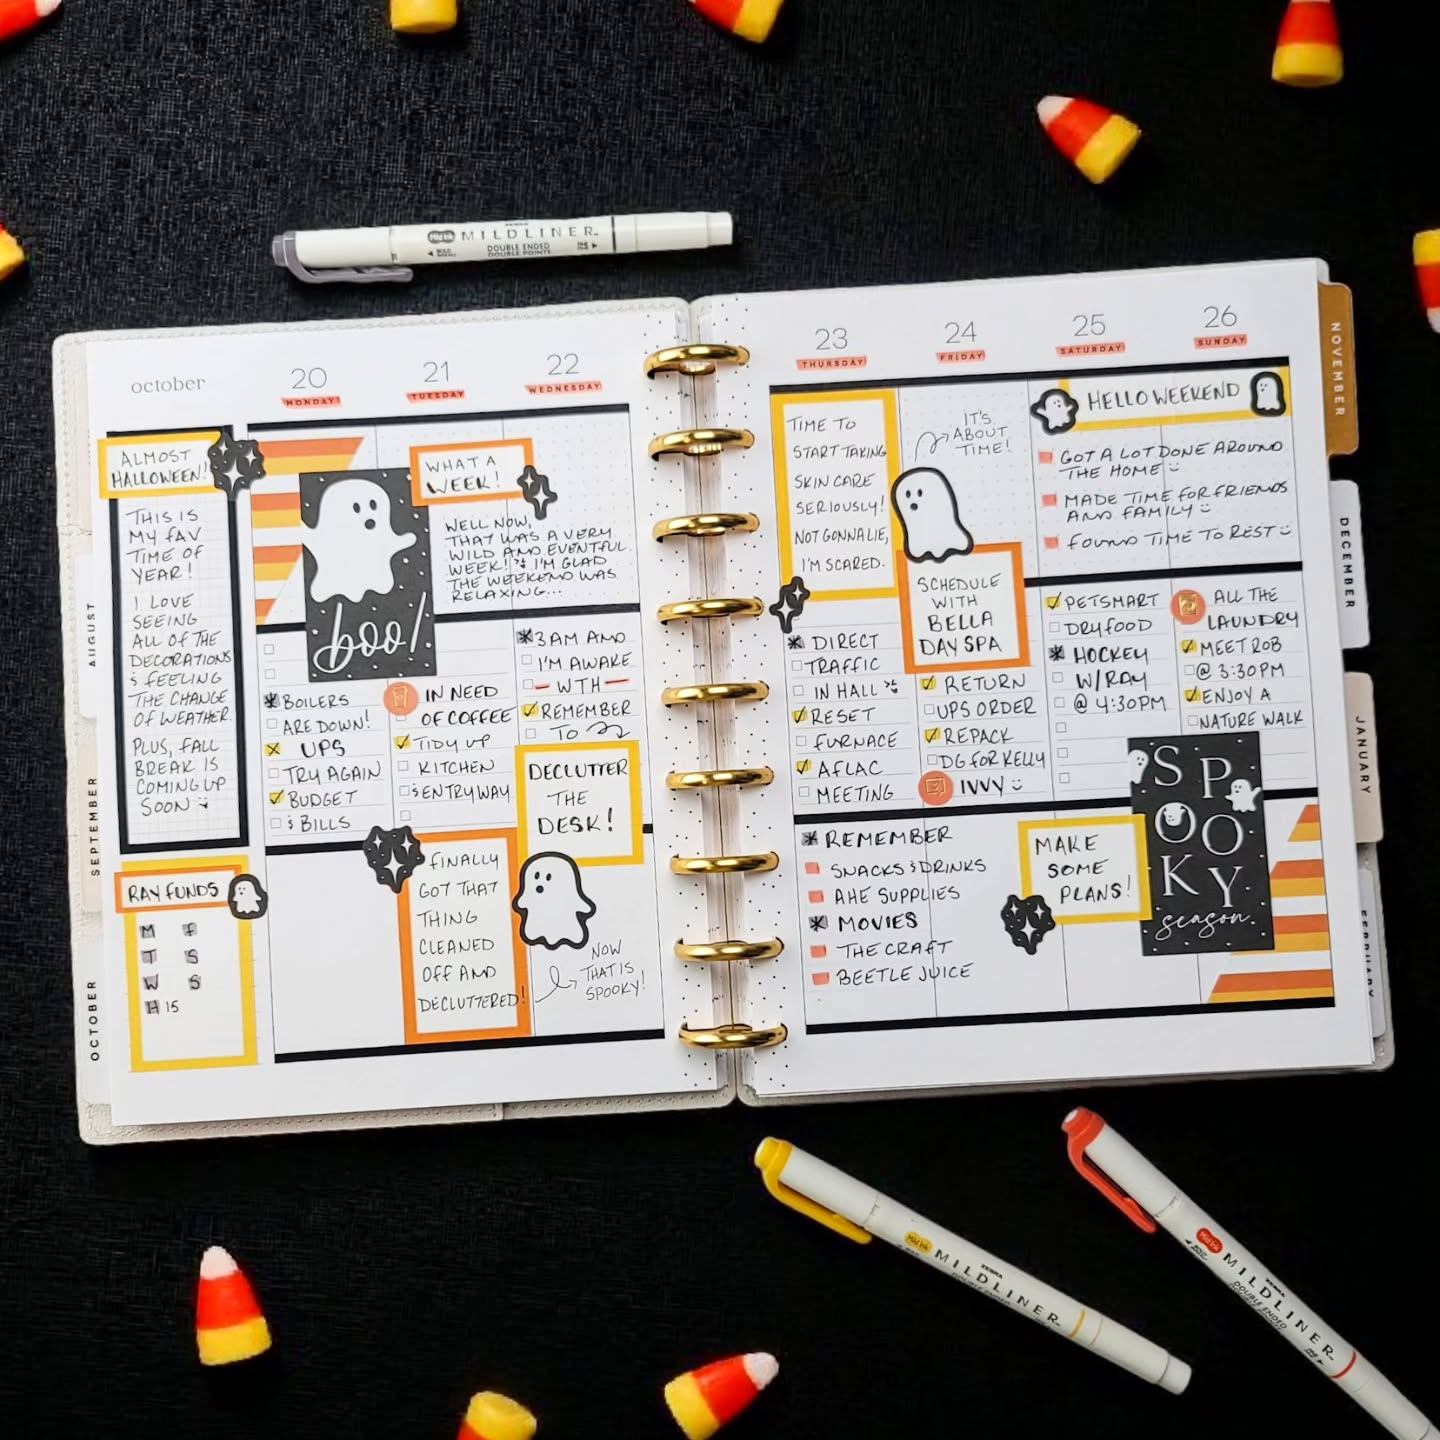 MILDLINER
ZEBRA
Mild Ink
DOUBLE ENDED
DOUBLE POINTE
october
20
MONDAY
21
TUESDAY
22
WEDNESDAY
23
THURSDAY
24
FRIDAY
25
SATURDAY
26
SUNDAY
ALMOST
HALLOWEEN!
THIS IS
MY FAV
TIME OF
YEAR!
I LOVE
SEEING
ALL OF THE
DECORATIONS
& FEELING
THE CHANGE
OF WEATHER.
PLUS, FALL
BREAK IS
COMING UP
SOON
RAY FUNDS
M F
T S
W S
H 15
boo!
WHAT A
WEEK!
WELL NOW,
THAT WAS A VERY
WILD AND EVENTFUL
WEEK! I'M GLAD
THE WEEKEND WAS
RELAXING...
BOILERS
ARE DOWN!
UPS
TRY AGAIN
BUDGET
& BILLS
IN NEED
OF COFFEE
TIDY UP
KITCHEN
& ENTRYWAY
FINALLY
GOT THAT
THING
CLEANED
OFF AND
DECLUTTERED!
3 AM AND
I'M AWAKE
— WTH —
REMEMBER
TO
DECLUTTER
THE
DESK!
NOW
THAT IS
SPOOKY!
TIME TO
START TAKING
SKIN CARE
SERIOUSLY!
NOT GONNA LIE,
I'M SCARED.
DIRECT
TRAFFIC
IN HALL
RESET
FURNACE
AFLAC
MEETING
IT'S
ABOUT
TIME!
SCHEDULE
WITH
BELLA
DAY SPA
RETURN
UPS ORDER
REPACK
DG FOR KELLY
IVVY
HELLO WEEKEND
GOT A LOT DONE AROUND
THE HOME
MADE TIME FOR FRIENDS
AND FAMILY
FOUND TIME TO REST
PETSMART
DRY FOOD
HOCKEY
W/RAY
@ 4:30PM
ALL THE
LAUNDRY
MEET ROB
@ 3:30PM
ENJOY A
NATURE WALK
REMEMBER
SNACKS & DRINKS
AHE SUPPLIES
MOVIES
THE CRAFT
BEETLEJUICE
MAKE
SOME
PLANS!
SPOOKY
season
AUGUST
SEPTEMBER
OCTOBER
NOVEMBER
DECEMBER
JANUARY
FEBRUARY
Mild Ink
ZEBRA
MILDLINER
Mild Ink
ZEBRA
MILDLINER
DOUBLE ENDED